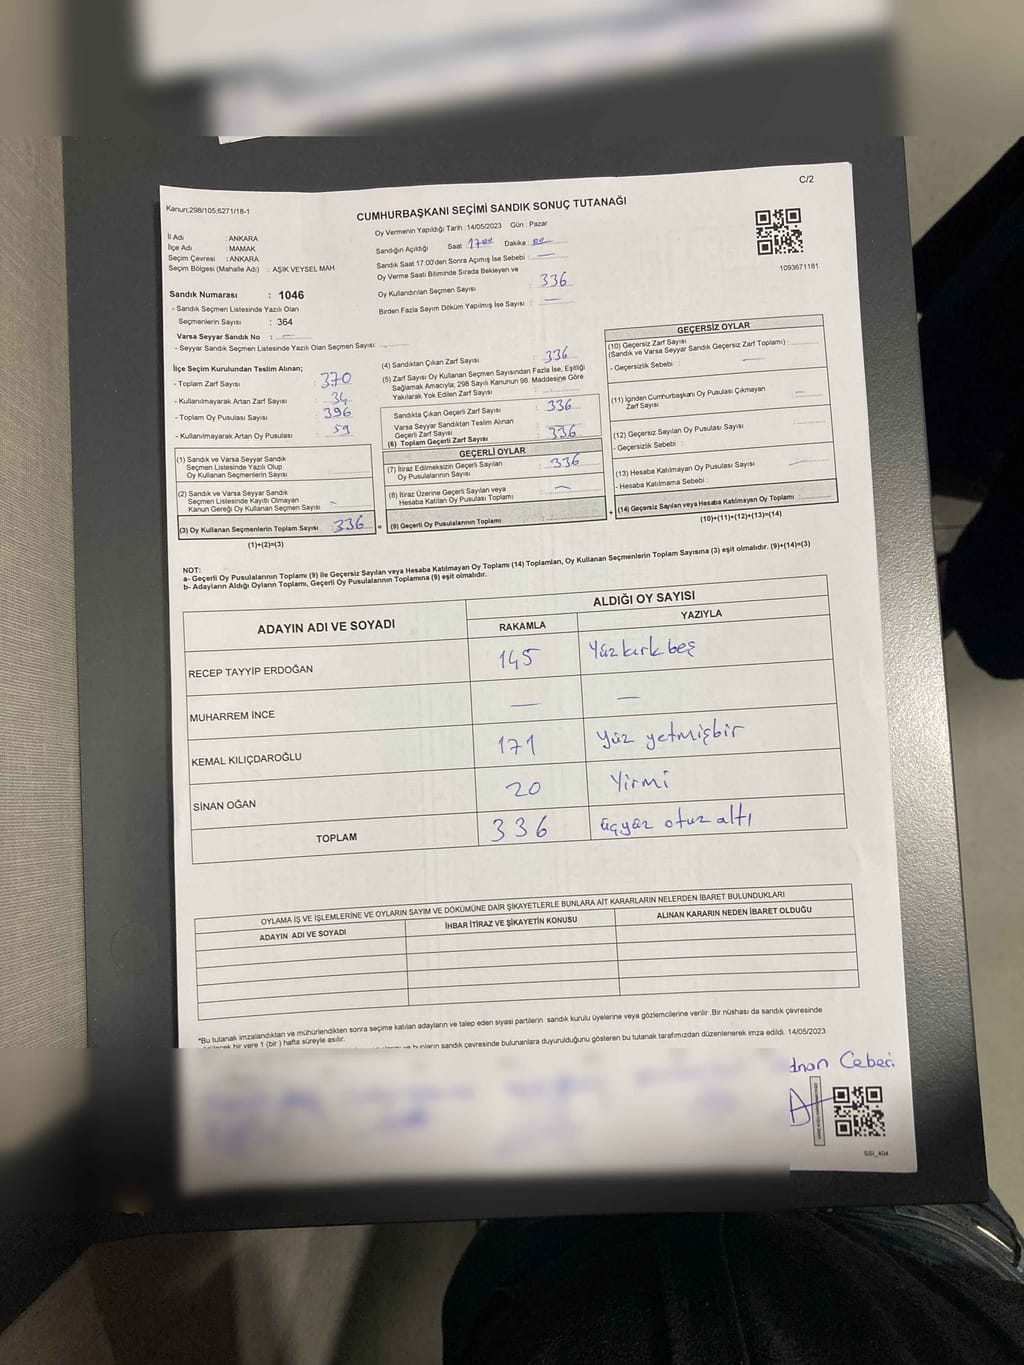 C/2
Kanun:298/105;6271/18-1
CUMHURBAŞKANI SEÇİMİ SANDIK SONUÇ TUTANAĞI
Oy Vermenin Yapıldığı Tarih : 14/05/2023 Gün : Pazar
1093671181
İl Adı : ANKARA
İlçe Adı : MAMAK
Seçim Çevresi : ANKARA
Seçim Bölgesi (Mahalle Adı) : AŞIK VEYSEL MAH.
Sandık Numarası : 1046
- Sandık Seçmen Listesinde Yazılı Olan
Seçmenlerin Sayısı : 364
Varsa Seyyar Sandık No :
- Seyyar Sandık Seçmen Listesinde Yazılı Olan Seçmen Sayısı:
Sandığın Açıldığı Saat : 17 00 Dakika : 00
Sandık Saat 17:00'den Sonra Açmış İse Sebebi : —
Oy Verme Saati Bitiminde Sırada Bekleyen ve
Oy Kullandırılan Seçmen Sayısı : 336
Birden Fazla Sayım Döküm Yapılmış İse Sayısı : —
İlçe Seçim Kurulundan Teslim Alınan;
- Toplam Zarf Sayısı : 370
- Kullanılmayarak Artan Zarf Sayısı : 34
- Toplam Oy Pusulası Sayısı : 396
- Kullanılmayarak Artan Oy Pusulası : 59
(1) Sandık ve Varsa Seyyar Sandık
Seçmen Listesinde Yazılı Olup
Oy Kullanan Seçmenlerin Sayısı :
(2) Sandık ve Varsa Seyyar Sandık
Seçmen Listesinde Kayıtlı Olmayan
Kanun Gereği Oy Kullanan Seçmen Sayısı : -
(3) Oy Kullanan Seçmenlerin Toplam Sayısı : 336 =
(1)+(2)=(3)
(4) Sandıktan Çıkan Zarf Sayısı : 336
(5) Zarf Sayısı Oy Kullanan Seçmen Sayısından Fazla İse, Eşitliği
Sağlamak Amacıyla; 298 Sayılı Kanunun 98. Maddesine Göre
Yakılarak Yok Edilen Zarf Sayısı :
Sandıkta Çıkan Geçerli Zarf Sayısı : 336
Varsa Seyyar Sandıktan Teslim Alınan
Geçerli Zarf Sayısı :
(6) Toplam Geçerli Zarf Sayısı : 336
GEÇERLİ OYLAR
(7) İtiraz Edilmeksizin Geçerli Sayılan
Oy Pusulalarının Sayısı : 336
(8) İtiraz Üzerine Geçerli Sayılan veya
Hesaba Katılan Oy Pusulası Toplamı : —
(9) Geçerli Oy Pusulalarının Toplamı : +
GEÇERSİZ OYLAR
(10) Geçersiz Zarf Sayısı
(Sandık ve Varsa Seyyar Sandık Geçersiz Zarf Toplamı) :
- Geçersizlik Sebebi : —
(11) İçinden Cumhurbaşkanı Oy Pusulası Çıkmayan
Zarf Sayısı : —
(12) Geçersiz Sayılan Oy Pusulası Sayısı :
- Geçersizlik Sebebi :
(13) Hesaba Katılmayan Oy Pusulası Sayısı : —
- Hesaba Katılmama Sebebi :
(14) Geçersiz Sayılan veya Hesaba Katılmayan Oy Toplamı :
(10)+(11)+(12)+(13)=(14)
NOT:
a- Geçerli Oy Pusulalarının Toplamı (9) ile Geçersiz Sayılan veya Hesaba Katılmayan Oy Toplamı (14) Toplamları, Oy Kullanan Seçmenlerin Toplam Sayısına (3) eşit olmalıdır. (9)+(14)=(3)
b- Adayların Aldığı Oyların Toplamı, Geçerli Oy Pusulalarının Toplamına (9) eşit olmalıdır.
ADAYIN ADI VE SOYADI
ALDIĞI OY SAYISI
RAKAMLA YAZIYLA
RECEP TAYYİP ERDOĞAN 145 Yüzkırkbeş
MUHARREM İNCE — —
KEMAL KILIÇDAROĞLU 171 Yüz yetmişbir
SİNAN OĞAN 20 Yirmi
TOPLAM 336 üçyüz otuz altı
OYLAMA İŞ VE İŞLEMLERİNE VE OYLARIN SAYIM VE DÖKÜMÜNE DAİR ŞİKAYETLERLE BUNLARA AİT KARARLARIN NELERDEN İBARET BULUNDUKLARI
ADAYIN ADI VE SOYADI İHBAR İTİRAZ VE ŞİKAYETİN KONUSU ALINAN KARARIN NEDEN İBARET OLDUĞU
*Bu tutanak imzalandıktan ve mühürlendikten sonra seçime katılan adayların ve talep eden siyasi partilerin sandık kurulu üyelerine veya gözlemcilerine verilir .Bir nüshası da sandık çevresinde
bir yere 1 (bir ) hafta süreyle asılır.
sandık çevresinde bulunanlara duyurulduğunu gösteren bu tutanak tarafımızdan düzenlenerek imza edildi. 14/05/2023
dnan Cebeci
SSI_404